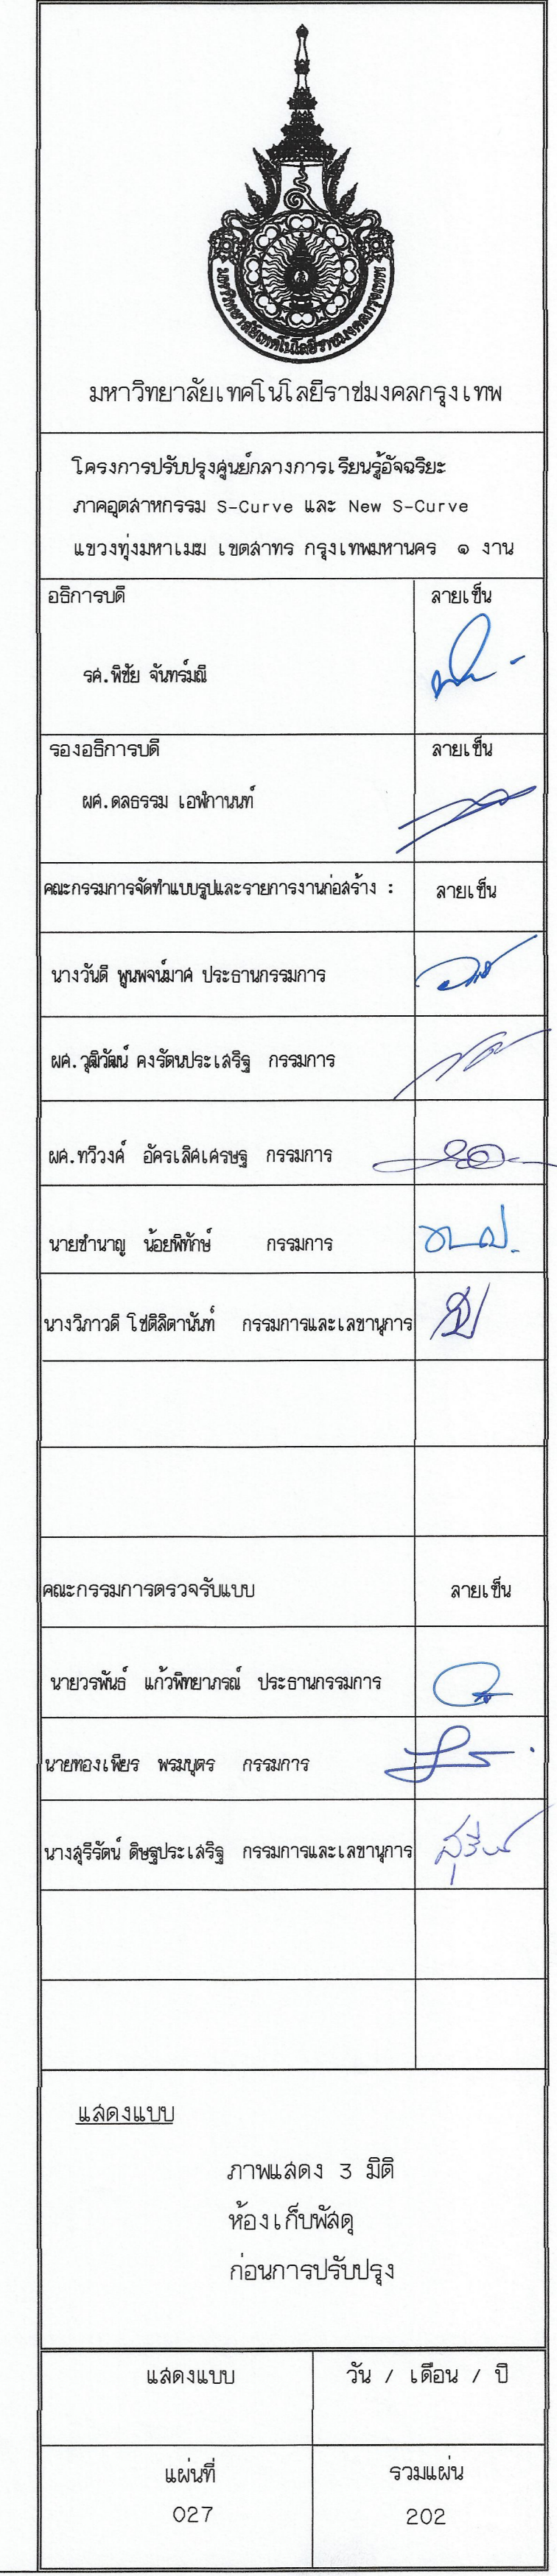 มหาวิทยาลัยเทคโนโลยีราชมงคลกรุงเทพ
มหาวิทยาลัยเทคโนโลยีราชมงคลกรุงเทพ
โครงการปรับปรุงศูนย์กลางการเรียนรู้อัจฉริยะ
ภาคอุตสาหกรรม S-Curve และ New S-Curve
แขวงทุ่งมหาเมฆ เขตสาทร กรุงเทพมหานคร ๑ งาน
อธิการบดี ลายเซ็น
รศ.พิชัย จันทร์มณี
รองอธิการบดี ลายเซ็น
ผศ.ดลธรรม เอฬกานนท์
คณะกรรมการจัดทำแบบรูปและรายการงานก่อสร้าง : ลายเซ็น
นางวันดี พูนพจน์มาศ ประธานกรรมการ
ผศ.วุฒิวัฒน์ คงรัตนประเสริฐ กรรมการ
ผศ.ทวีวงศ์ อัครเลิศเศรษฐ กรรมการ
นายชำนาญ น้อยพิทักษ์ กรรมการ
นางวิภาวดี โชติลิตานันท์ กรรมการและเลขานุการ
คณะกรรมการตรวจรับแบบ ลายเซ็น
นายวรพันธ์ แก้วพิทยาภรณ์ ประธานกรรมการ
นายทองเพียร พรมบุตร กรรมการ
นางสุรีรัตน์ ดิษฐประเสริฐ กรรมการและเลขานุการ
แสดงแบบ
ภาพแสดง 3 มิติ
ห้องเก็บพัสดุ
ก่อนการปรับปรุง
แสดงแบบ วัน / เดือน / ปี
แผ่นที่ รวมแผ่น
027 202